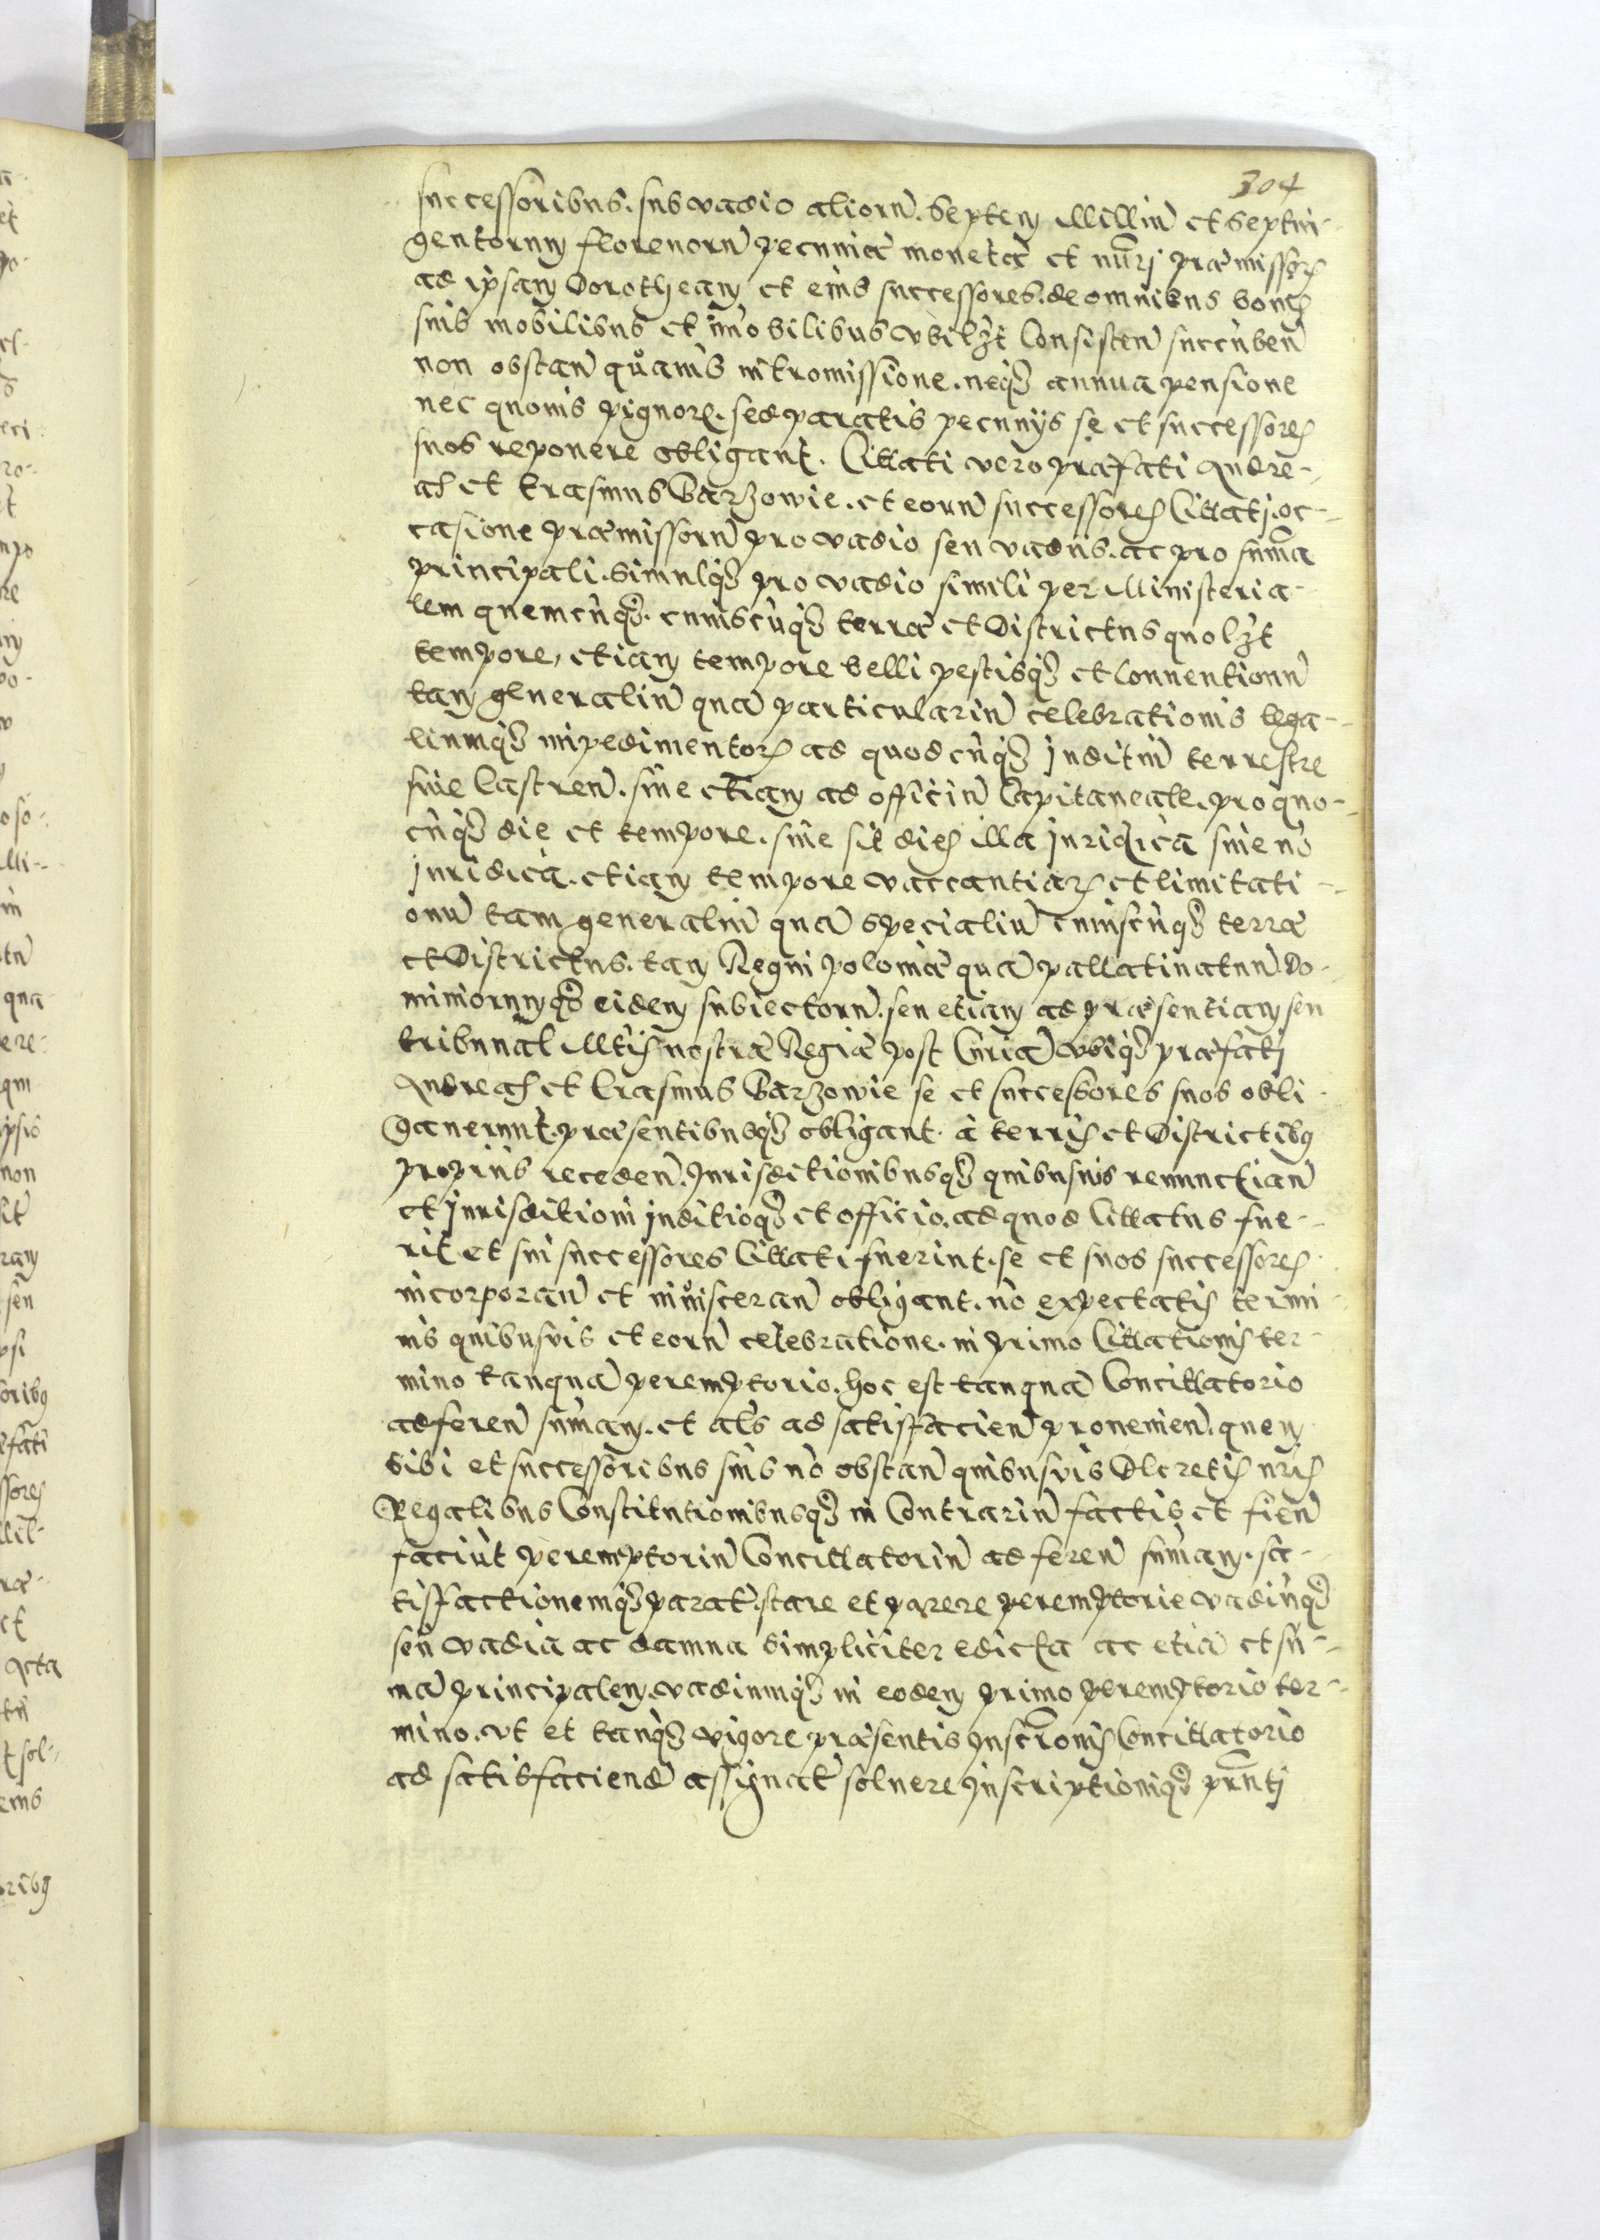 304
successoribus. sub vadio aliorū. Septem Milliū et Septin-
gentorum florenorū pecuniæ monetæ et nūri præmissorꝫ
ad ipsam Dorotheam et eius successores. de omnibus bonis
suis mobilibus et im̄obilibus vbilꝫt Consisten̄ succūben̄
non obstan̄ quauis intromissione. neqꝫ annua pensione
nec quouis pignore. sed paratis pecunijs se et successores
suos reponere obligant. Cittati vero præfati Andre-
as et Erasmus Barzowie. et eorū successores Cittati. oc-
casione præmissorū pro vadio seu vadiis. ac pro sum̄a
principali. Simulqꝫ pro vadio simili per Ministeria-
lem quemcūqꝫ. cuiuscūqꝫ terræ et Districtus quolꝫt
tempore, etiam tempore belli pestisqꝫ et Conuentionū
tam generaliū quā particulariū celebrationis lega-
liumqꝫ impedimentorꝫ ad quodcūqꝫ Juditiū terrestre
siue Castren̄. siue etiam ad officiū Capitaneale. pro quo-
cūqꝫ die et tempore. siue sit dies illa Juridica siue nō
Juridica. etiam tempore vaccantiarꝫ et limitati-
onū tam generaliū quā specialiū cuiuscūqꝫ terræ
et Districtus. tam Regni Poloniæ quā pallatinatuū. Do-
miniorumqꝫ eidem subiectorū. seu etiam ad præsentiam seu
tribunal Mtis nostræ Regiæ post Curiā vbiqꝫ præfati
Andreas et Erasmus Barzowie se et successores suos obli-
gauerunt. præsentibusqꝫ obligant. à terris et Districtibꝫ
proprius receden̄. Jurisditionibusqꝫ quibusuis renunctian̄
et Jurisditioni Juditioqꝫ et officio. ad quod Cittatus fue-
rit et sui successores Cittati fuerint. se et suos successores
incorporan̄ et inuisceran̄ obligant. nō expectatis termi-
nis quibusvis et eorū celebratione. in primo Cittationis ter-
mino tanquā peremptorio. hoc est tanquā Concittatorio
ad feren̄ sum̄am. et al's ad satisfacien̄ prouenien̄. quem
sibi et successoribus suis nō obstan̄ quibusvis Decretis nris
Regalibus Constitutionibusqꝫ in Contrariū factis et fien̄
faciūt peremptoriū Concittatoriū ad feren̄ sum̄am. sa-
tisfactionemqꝫ parat̄. stare et parere peremptorie vadiūqꝫ
seu vadia ac damna simpliciter edicta ac etiā et sū-
mā principalem. vadiumqꝫ in eodem primo peremptorio ter-
mino. vt et tanqꝫ vigore præsentis Inscrōnis Concittatorio
ad satisfaciend̄ assignat̄ soluere Inscriptioniqꝫ prn̄ti